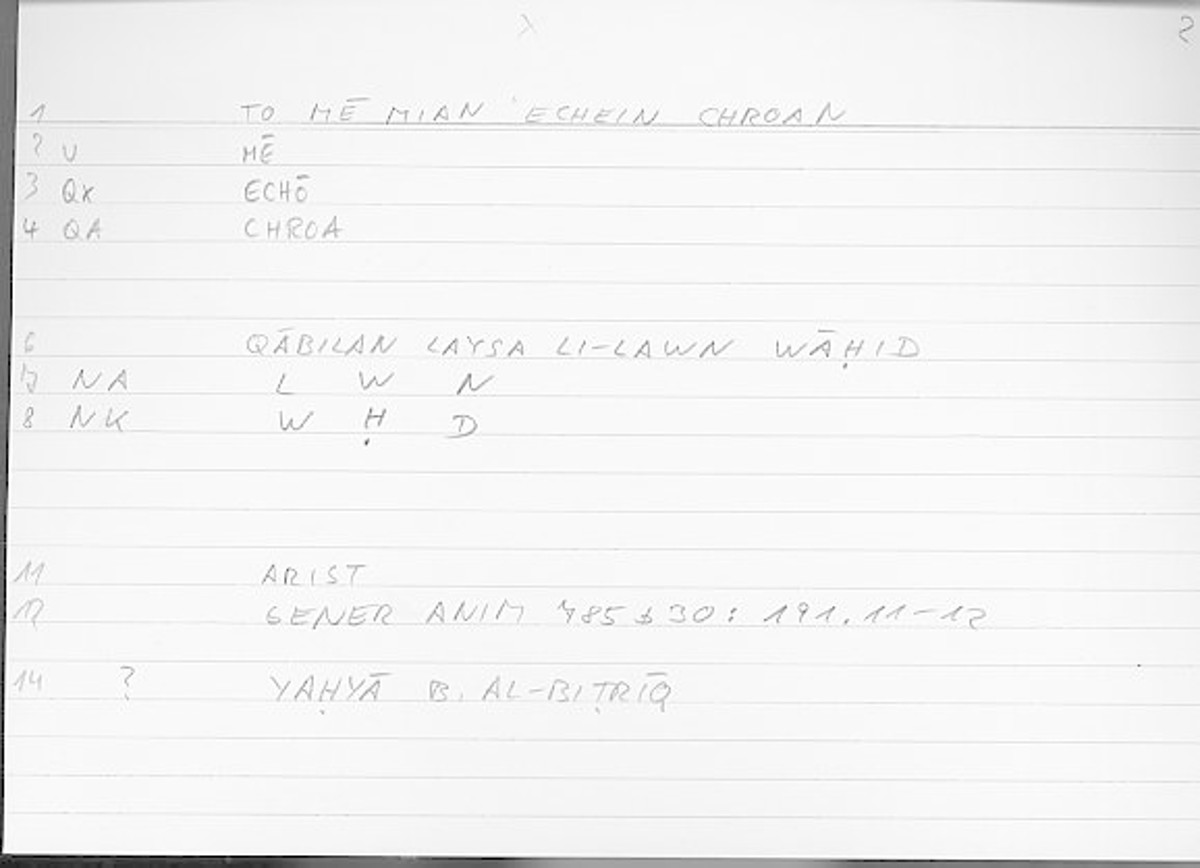 2
1 TO MĒ MIAN ECHEIN CHROAN
2 U MĒ
3 QX ECHŌ
4 QA CHROA
6 QĀBILAN LAYSA LI-LAWN WĀḤID
7 NA L W N
8 NK W Ḥ D
11 ARIST
12 GENER ANIM 785 b 30: 191.11-12
14 ? YAḤYĀ B. AL-BIṬRĪQ